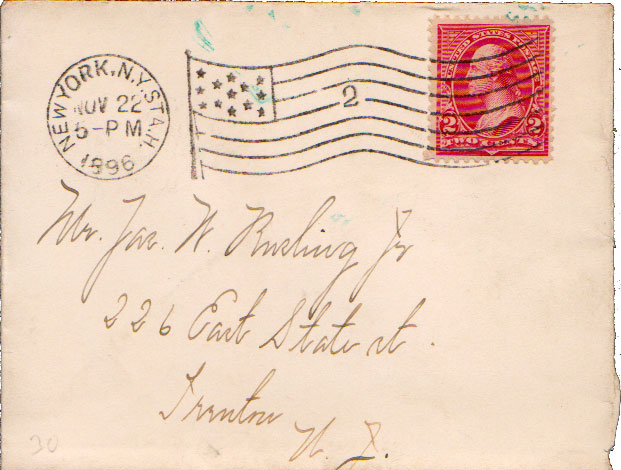 NEW YORK, N.Y. STA. H.
NOV 22
5-PM
1896
2
UNITED STATES POSTAGE
2 2
TWO CENTS
Mr. Jas. W. Rusling Jr
226 East State st.
Trenton
N. J.
30